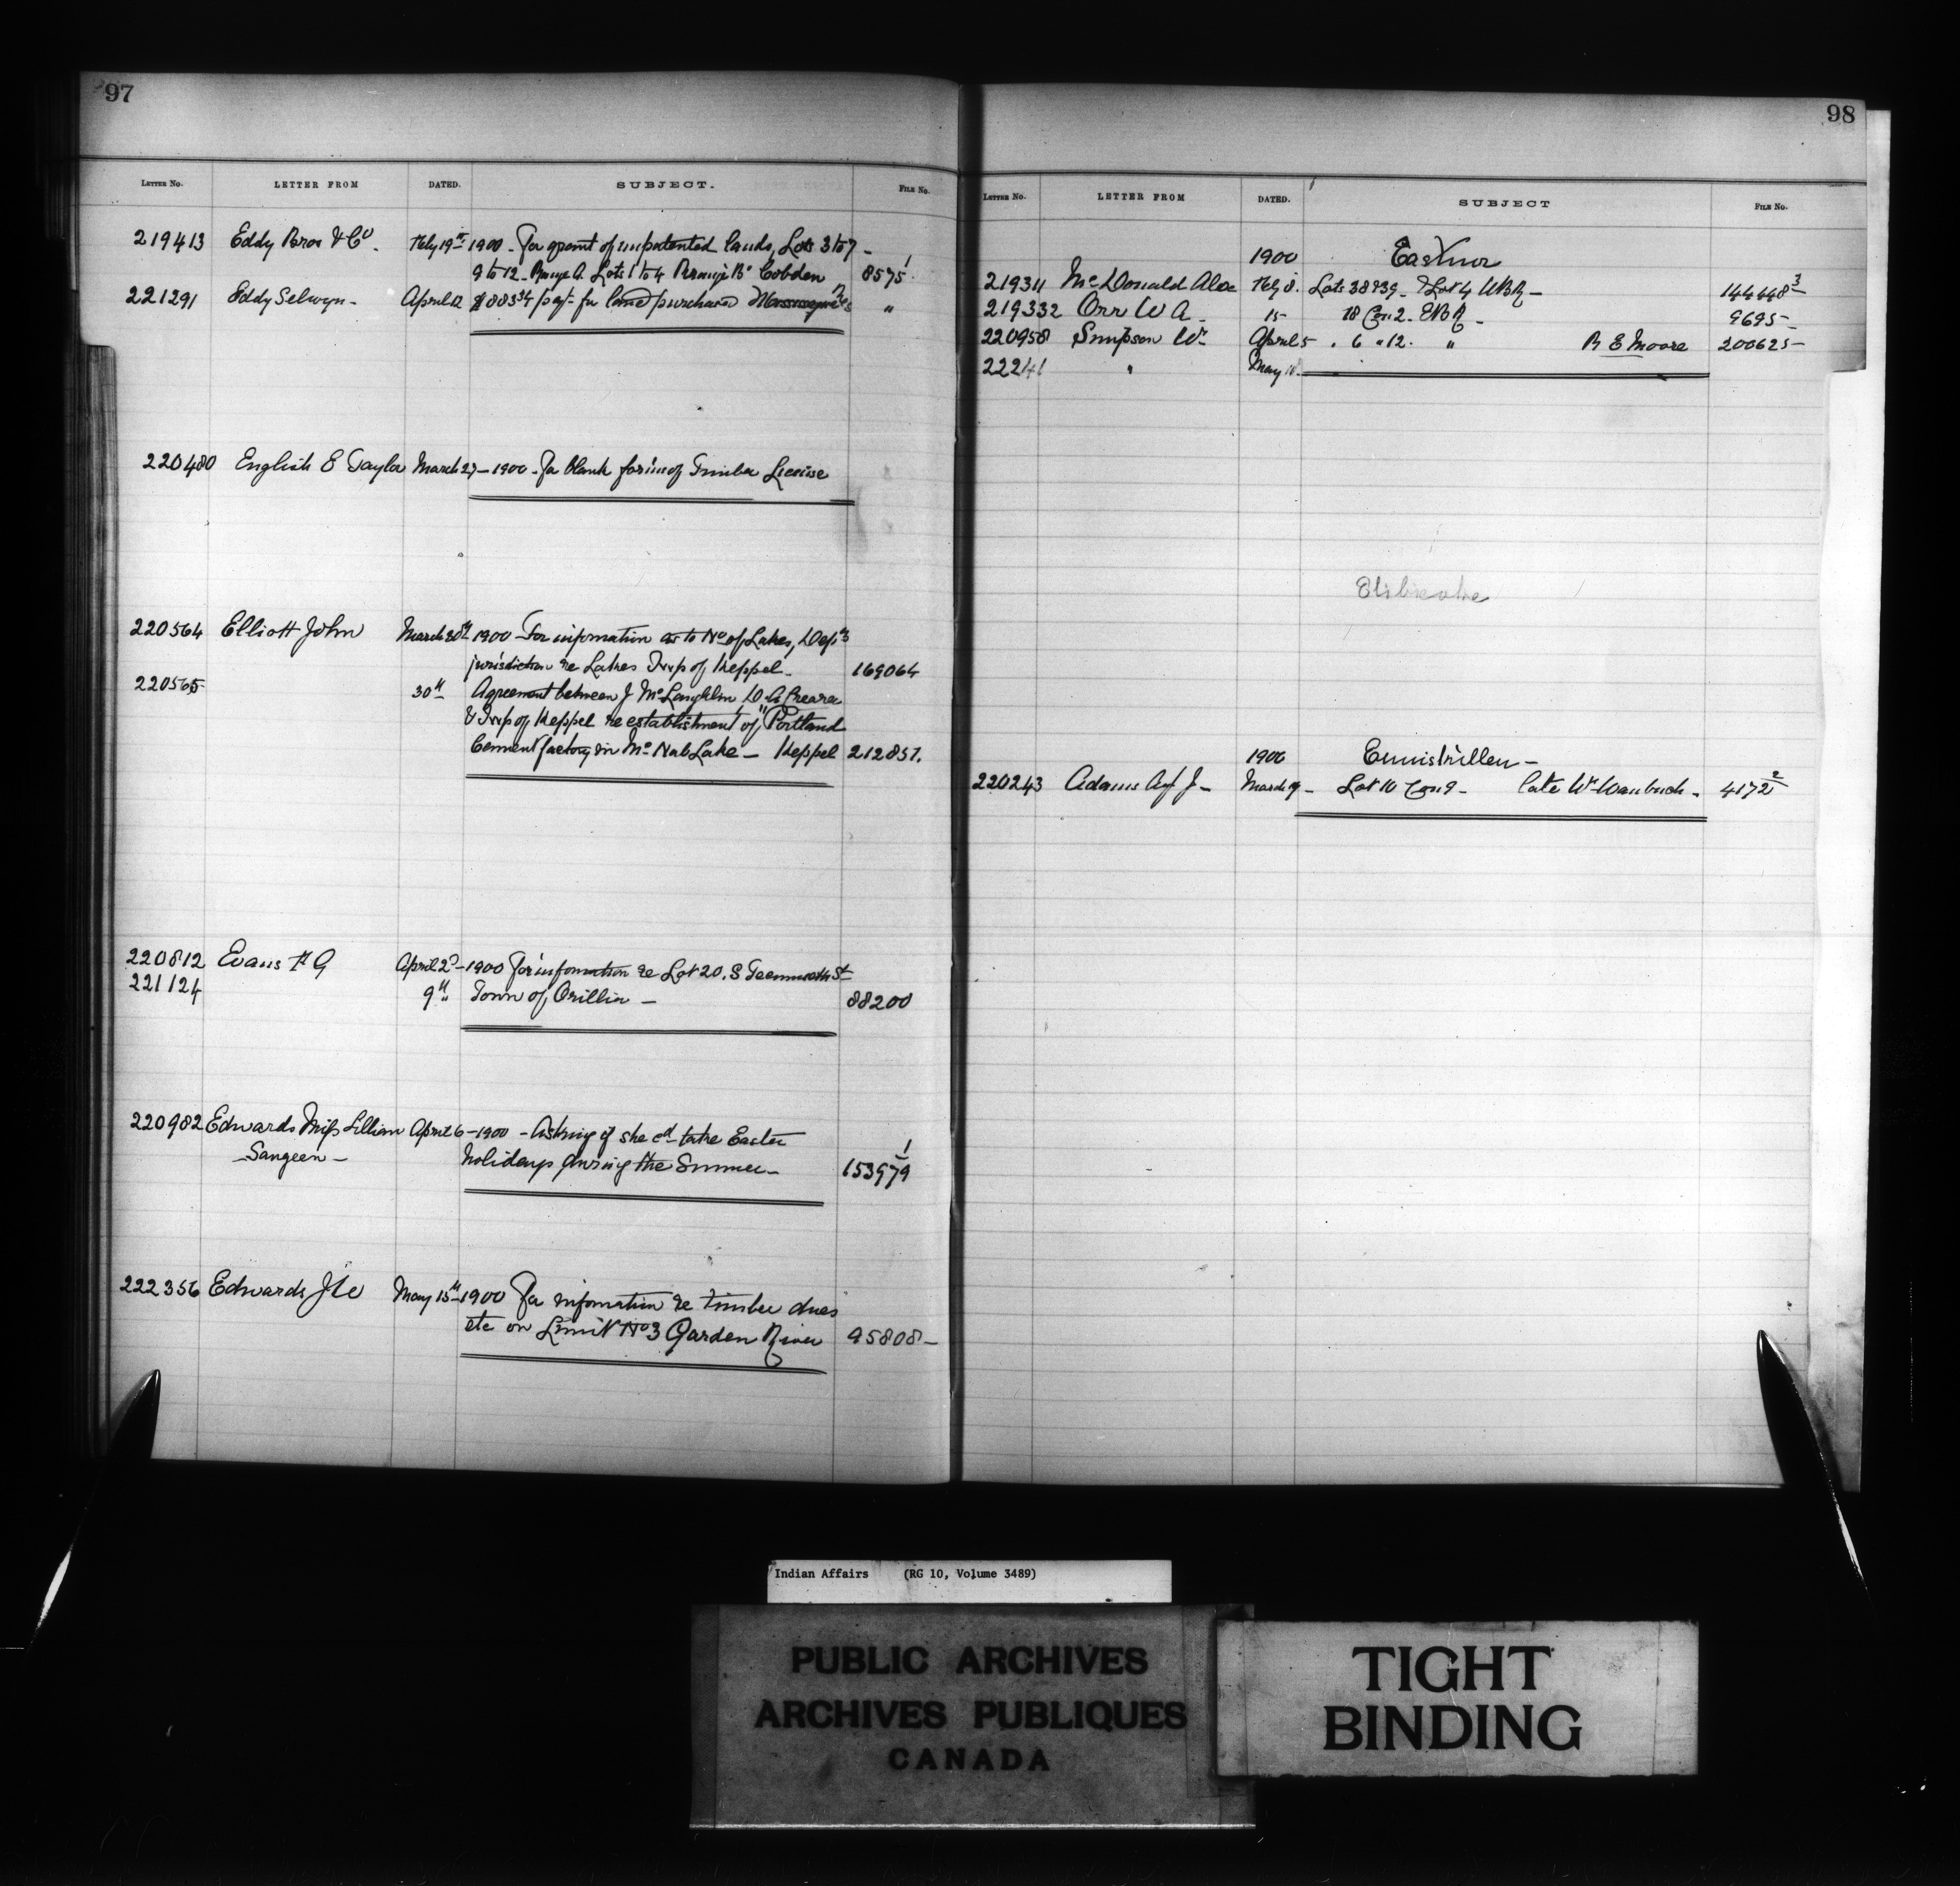 97
LETTER NO. LETTER FROM DATED. SUBJECT. FILE NO.
219413 Eddy Bros & Co. Feby 19th 1900 - For grant of unpatented lands, Lots 3 to 7 -
9 to 12 - Range A. Lots 1 to 4 Range B. Cobden 8575 1
221291 Eddy Selwyn - April 12 $883 34 payt for land purchased "
220480 English E Taylor March 27 - 1900 - For blank form of Timber License
220564 Elliott John March 30th 1900 - For information as to No of Lakes, Depts
jurisdiction re Lakes Twp of Keppel - 169064
220565 30th Agreement between J McLaughlin, D A
& Twp of Keppel re establishment of Portland
Cement factory in McNab Lake - Keppel 212851.
220812 Evans H G April 2d - 1900 For information re Lot 20. S St
221124 9th " Town of Orillia - 88200
220982 Edwards Miss Lillian April 6 - 1900 - Asking if she cd take Easter
- Saugeen - holidays during the Summer - 153979 1
222356 Edwards J May 15th 1900 For information re timber dues
etc on Limit No 3 Garden River 95808 -
98
LETTER NO. LETTER FROM DATED. SUBJECT FILE NO.
1900 Eastnor
219311 McDonald Alex Feby 8. Lots 38 & 39 - & Lot 4 WBR - 144448 3
219332 Orr W A - 15 18 Con 2 - EBR - 9695 -
220958 Simpson Wm April 5 . 6 " 12. " R E Moore 200625 -
22241 " May
1900 Enniskillen -
220243 Adams Agt J - March 19 - Lot 10 Con 9 - late Wm - 4172 2
Indian Affairs (RG 10, Volume 3489)
PUBLIC ARCHIVES
ARCHIVES PUBLIQUES
CANADA
TIGHT
BINDING